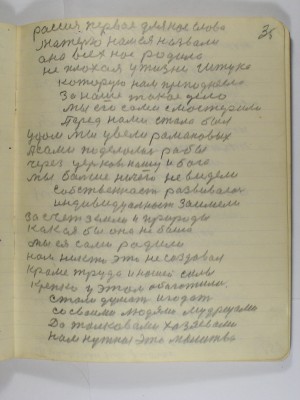 35
рассия первая для нас слово
Матерью нам ея назвали
она всех нас родила
не плохая у жизни штука
которую нам преподнесла
За наше такое дело
мы его сами смостерили
Перед нами стало был
удом мы увели рамановых
Псами поделомса рабы
через церковь нашу и бога
мы больше ничего не видели
собственност развивали
индивидуалност Заимели
За счет земли и природы
какая бы она не была
мы ея сами родили
нам никто это не создавал
Кроме труда и нашей силы
Крепко у этом обаготили
стали думат и гадат
со своими людями мудрецами
До толковами хазяевами
нам нужная это малитва